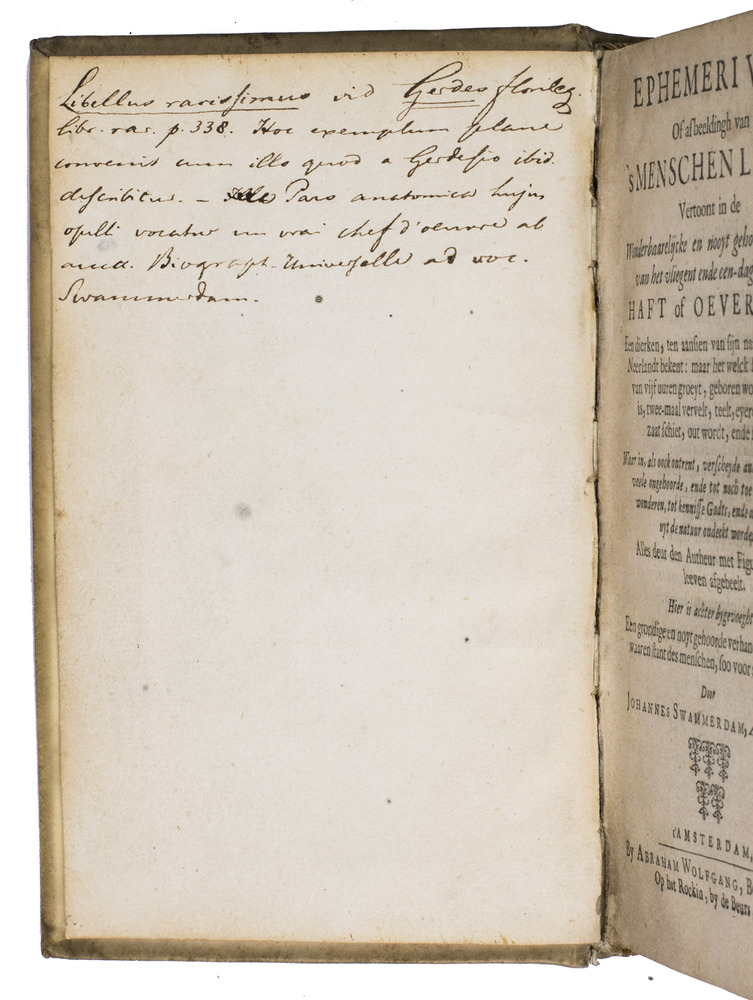 Libellus rarissimus vid Gerdes florileg.
libr. rar. p. 338. Hoc exemplum plane
convenit cum illo quod a Gerdesio ibid.
describitur. – Pars anatomica hujus
opelli vocatur un vrai chef d'oeuvre ab
auct. Biograph. Universelle ad voc.
Swammerdam.
EPHEMERI V
Of afbeeldingh van
'sMENSCHEN L
Vertoont in de
Wonderbaarelijcke en nooyt geho
van het vliegent ende een-dag
HAFT of OEVER
Een dierken, ten aansien van sijn na
Neerlandt bekent: maar het welck
van vijf uuren groeyt, geboren wo
is, twee-maal vervelt, teelt, eyer
zaat schiet, out wordt, ende
Waar in, als oock ontrent, verscheyde an
veele ongehoorde, ende tot noch toe
wonderen, tot kennisse Godts, ende
uyt de natuur ondeckt worde
Alles deur den Autheur met Figu
leeven afgebeelt.
Hier is achter bygevoeght
Een grondige en noyt gehoorde verhan
waaren stant des menschen, soo voor
Door
JOHANNES SWAMMERDAM,
t'AMSTERDAM,
By ABRAHAM WOLFGANG, B
Op het Rockin, by de Beurs